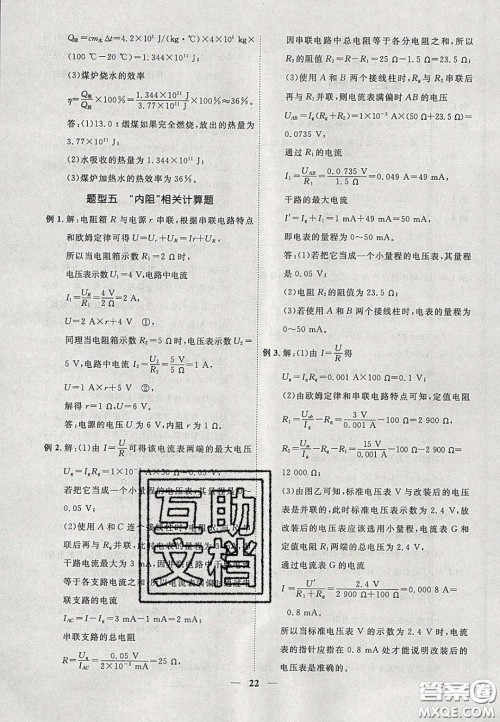 Q吸=cm水Δt=4.2×10³ J/(kg·℃)×4×10⁵ kg×
(100 ℃-20 ℃)=1.344×10¹¹ J
(3)煤炉烧水的效率
η=Q吸/Q放×100%=1.344×10¹¹ J/3.77×10¹¹ J×100%≈36%。
答:(1)3.0 t烟煤如果完全燃烧,放出的热量为
3.77×10¹¹ J。
(2)水吸收的热量为 1.344×10¹¹ J。
(3)煤炉加热水的效率为 36%。
题型五 "内阻"相关计算题
例 1. 解:电阻箱 R 与电源 r 串联,根据串联电路特点
和欧姆定律可得 U=Ur+UR=Ir+UR
所以当电阻箱示数 R1=2 Ω时,
电压表示数 U1=4 V,电路中电流
I1=U1/R1=4 V/2 Ω=2 A,
U=2 A×r+4 V ①,
同理当电阻箱示数 R2=5 Ω时,电压表示数 U2=
5 V,电路中电流 I2=U2/R2=5 V/5 Ω=1 A,
U=1 A×r+5 V ②,
由①②解得 U=6 V,r=1 Ω。
答:电源的电压 U 为 6 V,内阻 r 为 1 Ω。
例 2. 解:(1)由 I=U/R 可得该电流表两端的最大电压
Ug=IgRg=1×10⁻³ A×50 Ω=0.05 V
若把它当成一个小量程的电压表,量程为 0.05 V。
(2)使用 A 和 C 连个接线柱时,电
并联,
干路电流最大为 3 mA,因并联电路中干路电流
等于各支路电流之和,所以电流表满偏时通过
电联支路的电流
IAC=I-Ig=3 mA-1 mA=2 mA
串联支路的总电阻
R=U/IAC=0.05 V/2×10⁻³ mA=25 Ω
因串联电路中总电阻等于各分电阻之和,所以,
R2=R-R1=25 Ω-1.5 Ω=23.5 Ω
(3)使用 A 和 B 两个接线柱时,Rg与 R2 串联后
再与 R1 并联,则电流表满偏时 A 和 B 的电压
UAB=Ig(Rg+R2)=1×10⁻³ A×(50 Ω+23.5 Ω)=
0.0735 V
通过 R1 的电流
I1=UAB/R1=0.0735 V/1.5 Ω=0.049 A=49 mA
干路的电流
I'=Ig+I1=1 mA+49 mA=50 mA
即电表的量程为 50 mA。
答:(1)若把它当成一个小量程的电压表,量程
为 0.05 V。
(2)电阻 R2 的阻值为 23.5 Ω。
(3)使用 A 和 B 两个接线柱时,电表的量程为
0~50 mA。
例 3. 解:(1)由 I=U/R得
Ug=IgRg=0.001 A×100 Ω=0.1 V
(2)由欧姆定律和串联电路特点可知,定值电阻
R1=U1/Ig-Rg=3 V/0.001 A-100 Ω=2 900 Ω,
R2=U2/Ig-Rg-R1=15 V/0.001 A-100 Ω-2 900 Ω=
12 000 Ω
(3)由图乙可知,标准电压表 V 与改装后的电压表
是并联的,此时电压表的示数为 2.4 V,
故改装后电压表应该选用小量程,电流表 G 和
定值电阻两端的总电压为 2.4 V,
I=U'/R1+Rg=2.4 V/2 900 Ω+100 Ω=0.000 8 A=
0.8 mA。
所以当标准电压表 V 的示数为 2.4 V 时,电流
表的指针应指在 0.8 mA 处才能说明改装后的
电压表是准确的。
互助
文档
22
答案圈
MXQE.COM